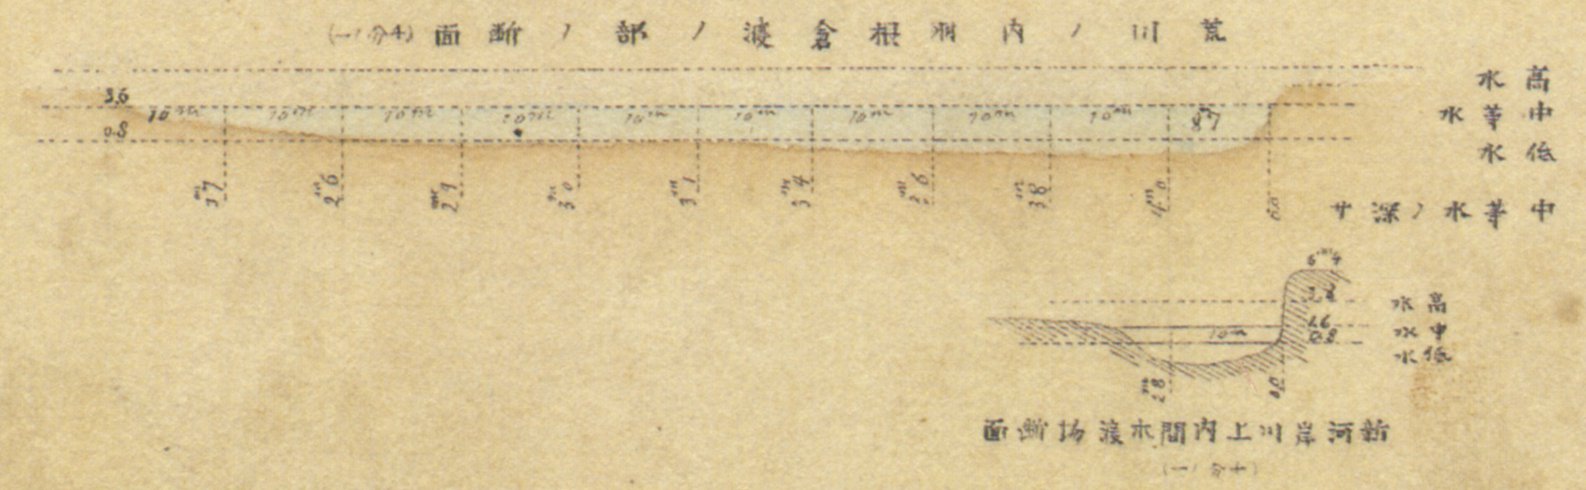 荒川ノ内羽根倉渡ノ部ノ断面(千分ノ一)
高水
中等水
低水
中等水ノ深サ
3.6
0.8
10m 10m 10m 10m 10m 10m 10m 10m 10m 8.7
2.6 2.9 3.0 3.1 3.4 3.6 3.8 4.0 0.0
6m4
1.6
0.8
10m
高水
中水
低水
2.8 0.0
新河岸川上内間木渡場断面
(千分ノ一)